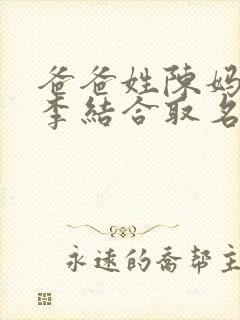 爸爸姓陳妈
李結合取名
永遠的喬帮主